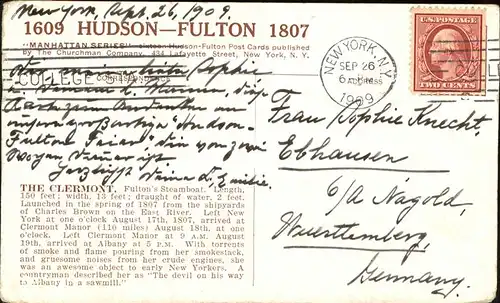 New York, Sept. 26, 1909.
1609 HUDSON—FULTON 1807
"MANHATTAN SERIES" sixteen Hudson-Fulton Post Cards published
By The Churchman Company, 434 Lafayette Street, New York, N. Y.
COLLEGE CORRESPONDENCE
Liebe Sophie
u.
diese
Karte zum Andenken an
unsere grossartige "Hudson-
Fulton Feier", die von zwei
Herzlichst Deine L. Emilie.
THE CLERMONT. Fulton's Steamboat. Length,
150 feet; width, 13 feet; draught of water, 2 feet.
Launched in the spring of 1807 from the shipyards
of Charles Brown on the East River. Left New
York at one o'clock August 17th, 1807, arrived at
Clermont Manor (110 miles) August 18th, at one
o'clock. Left Clermont Manor at 9 A.M. August
19th, arrived at Albany at 5 P.M. With torrents
of smoke and flame pouring from her smokestack,
and gruesome noises from her crude engines, she
was an awesome object to early New Yorkers. A
countryman described her as "The devil on his way
to Albany in a sawmill."
NEW YORK, N.Y.
SEP 26
6 PM
1909
U.S. POSTAGE
TWO CENTS
Frau Sophie Knecht,
Ebhausen
o/a Nagold,
Wuerttemberg,
Germany.